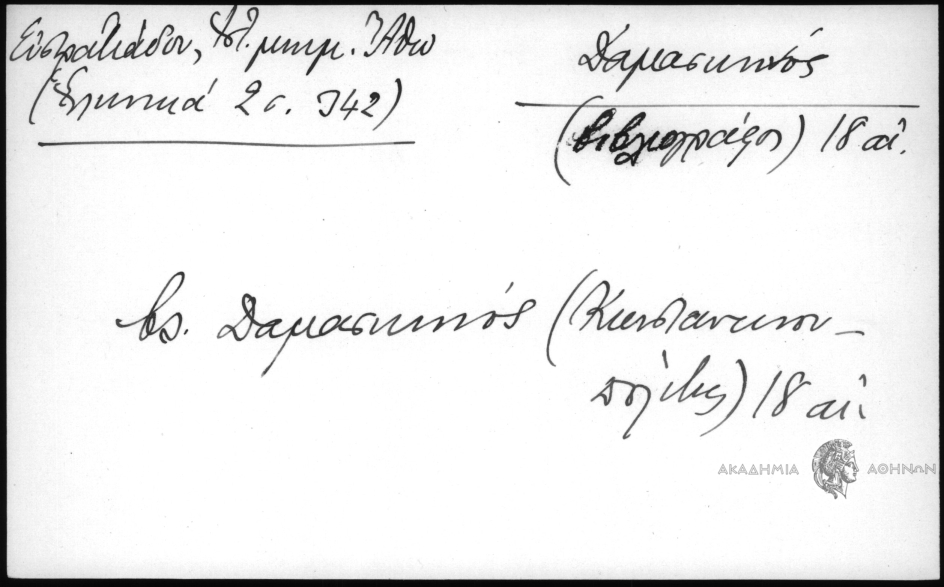 Εὐστρατιάδου, Ἱστ. μνημ. Ἄθω
(Ἑλληνικά 2 σ. 342)
Δαμασκηνός
(βιβλιογράφος) 18 αἰ.
βλ. Δαμασκηνός (Κωνσταντινου-
πολίτης) 18 αἰ.
ΑΚΑΔΗΜΙΑ ΑΘΗΝΩΝ